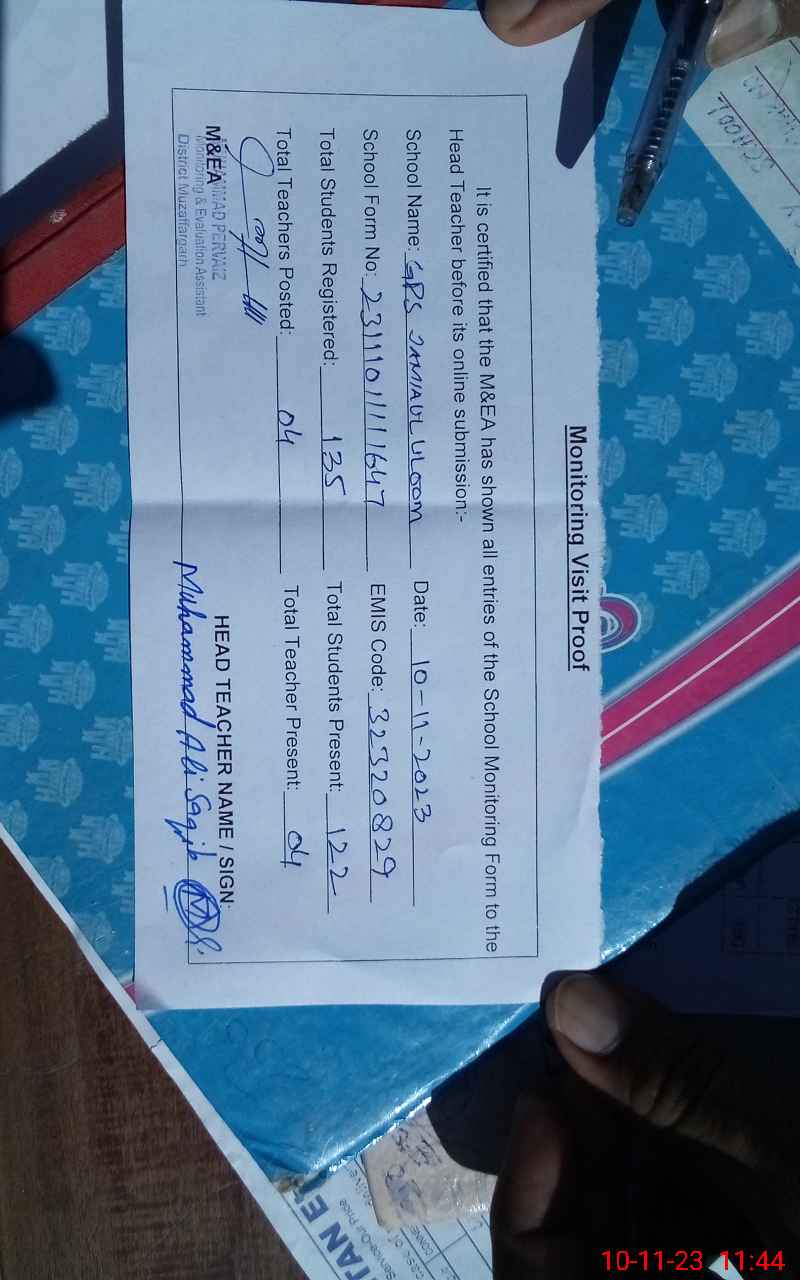 Monitoring Visit Proof
It is certified that the M&EA has shown all entries of the School Monitoring Form to the
Head Teacher before its online submission:-
School Name: GPS JAMIAUL ULOOM Date: 10-11-2023
School Form No: 231110111111647 EMIS Code: 32320829
Total Students Registered: 135 Total Students Present: 122
Total Teachers Posted: 04 Total Teacher Present: 04
M&EA
MUHAMMAD PERVAIZ
Monitoring & Evaluation Assistant
District Muzaffargarh
HEAD TEACHER NAME / SIGN:
Muhammad Ali Saqib
SCHOOL
10-11-23 11:44